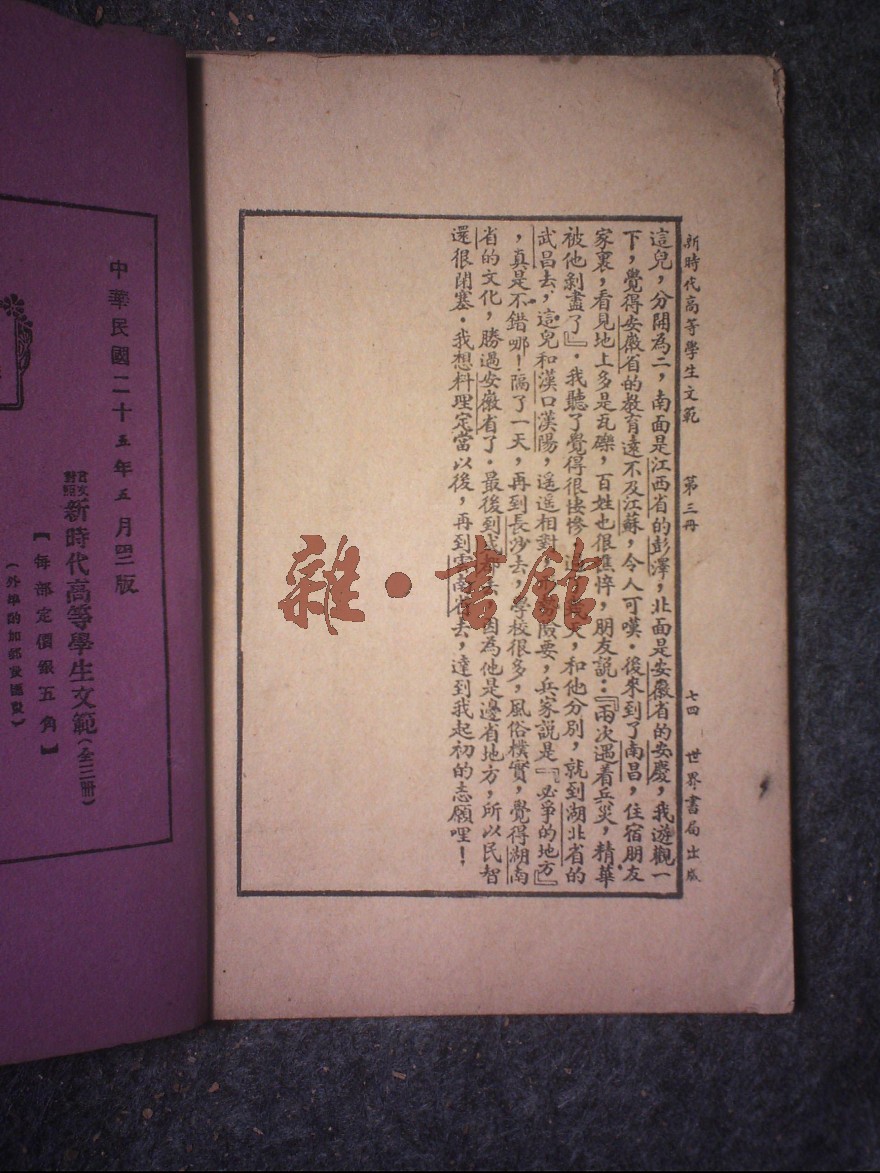 新時代高等學生文範　第三冊　七四　世界書局出版
這兒，分開為二，南面是江西省的彭澤，北面是安徽省的安慶，我遊觀一
下，覺得安徽省的教育遠不及江蘇，令人可嘆．後來到了南昌，住宿朋友
家裏，看見地上多是瓦礫，百姓也很憔悴，朋友説：『兩次遇着兵災，精華
被他剝盡了』．我聽了覺得很悽慘，天，和他分別，就到湖北省的
武昌去，這兒和漢口漢陽，遥遥相對，險要，兵家説是『必爭的地方』
，真是不錯哪！隔了一天，再到長沙去，學校很多，風俗樸實，覺得湖南
省的文化，勝過安徽省了．最後到去，因為他是邊省地方，所以民智
還很閉塞．我想料理定當以後，再到雲南省去，達到我起初的志願哩！
中華民國二十五年五月四版
言文對照新時代高等學生文範（全三冊）
【每部定價銀五角】
（外埠酌加郵費匯費）
雜·書館